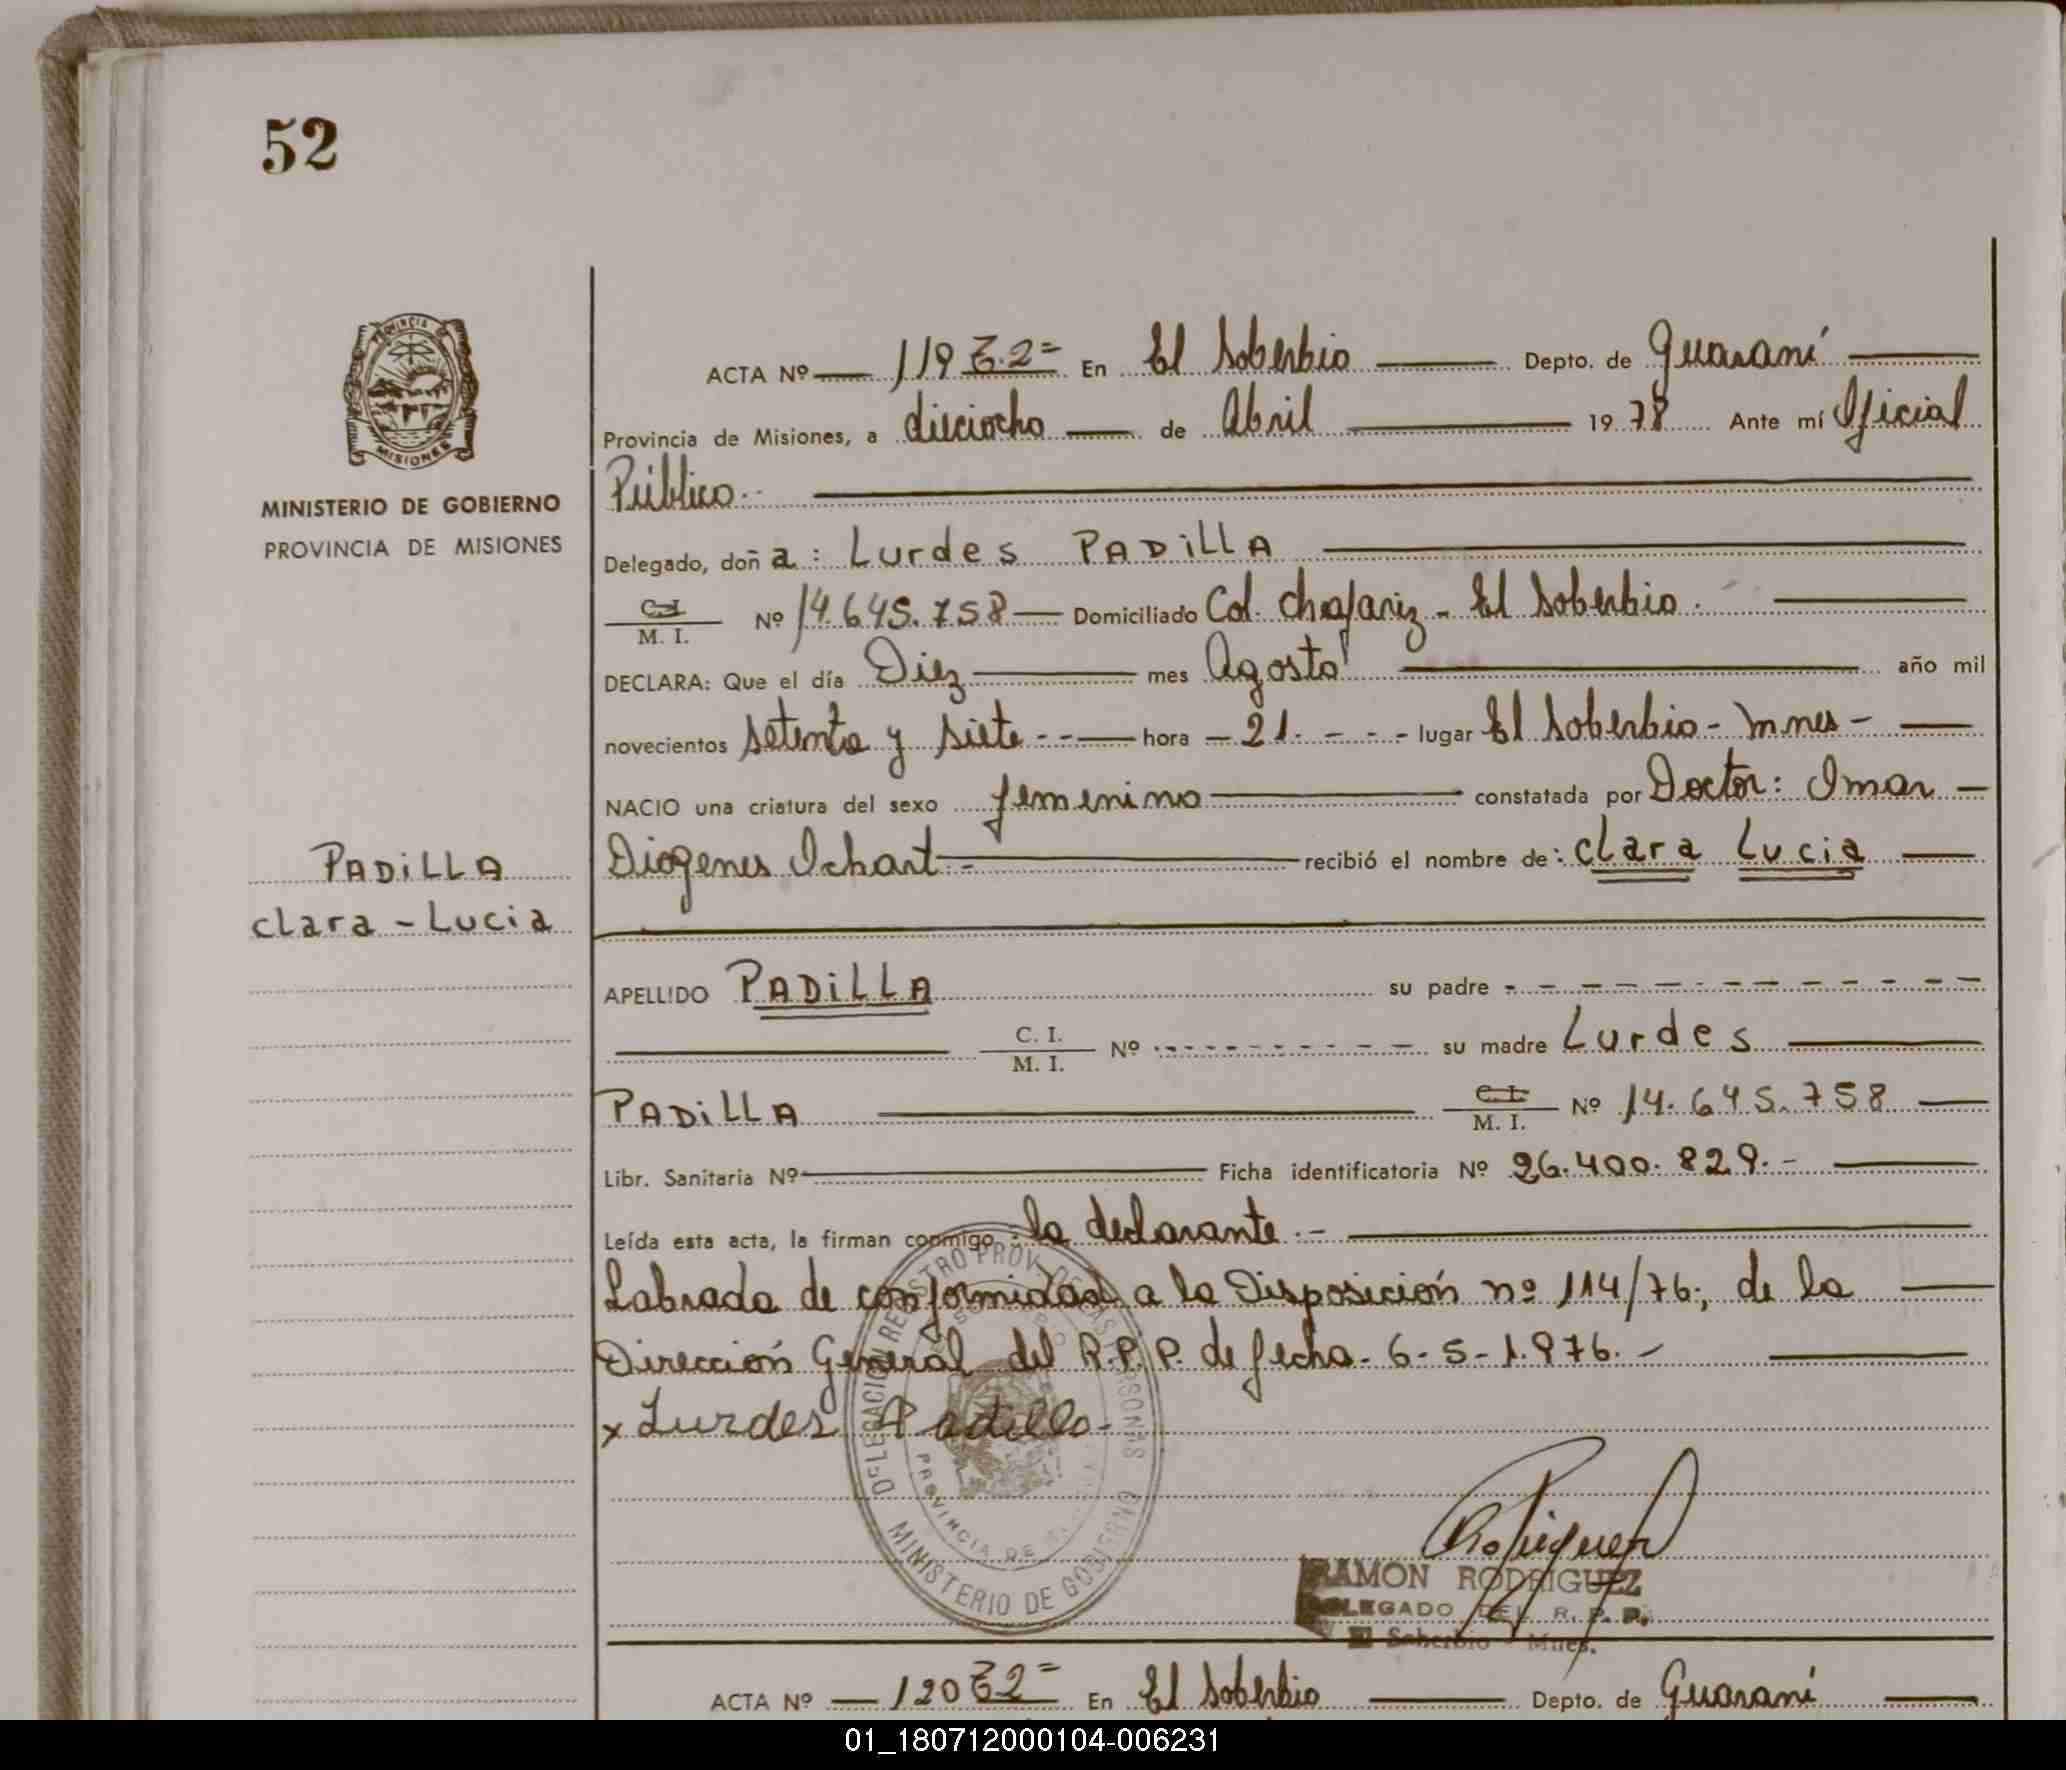 52
PROVINCIA DE
MISIONES
MINISTERIO DE GOBIERNO
PROVINCIA DE MISIONES
PADILLA
clara - Lucia
ACTA Nº 119 En El Soberbio Depto. de Guaraní
Provincia de Misiones, a dieciocho de Abril 1978 Ante mí Oficial
Público.
Delegado, doña: Lurdes PADILLA
C.I. M. I. Nº 14.645.758 Domiciliado Col. Chafariz - El Soberbio.
DECLARA: Que el día Diez mes Agosto año mil
novecientos setenta y siete hora 21 lugar El Soberbio - Mnes -
NACIO una criatura del sexo femenino constatada por Doctor: Omar
Diogenes Ichart recibió el nombre de: clara Lucia
APELLIDO PADILLA su padre
C. I. M. I. Nº su madre Lurdes
PADILLA C.I. M. I. Nº 14.645.758
Libr. Sanitaria Nº Ficha identificatoria Nº 26.400.829.-
Leída esta acta, la firman conmigo: la declarante.-
Labrada de conformidad a la Disposición nº 114/76; de la
Dirección General del R.P.P. de fecha 6-5-1.976.-
x Lurdes Padilla
DELEGACION REGISTRO PROV. DE LAS PERSONAS
PROVINCIA DE
MINISTERIO DE GOBIERNO
RAMON RODRIGUEZ
DELEGADO DEL R. P. P.
El Soberbio - Mnes.
ACTA Nº 120 En El Soberbio Depto. de Guaraní
01_180712000104-006231